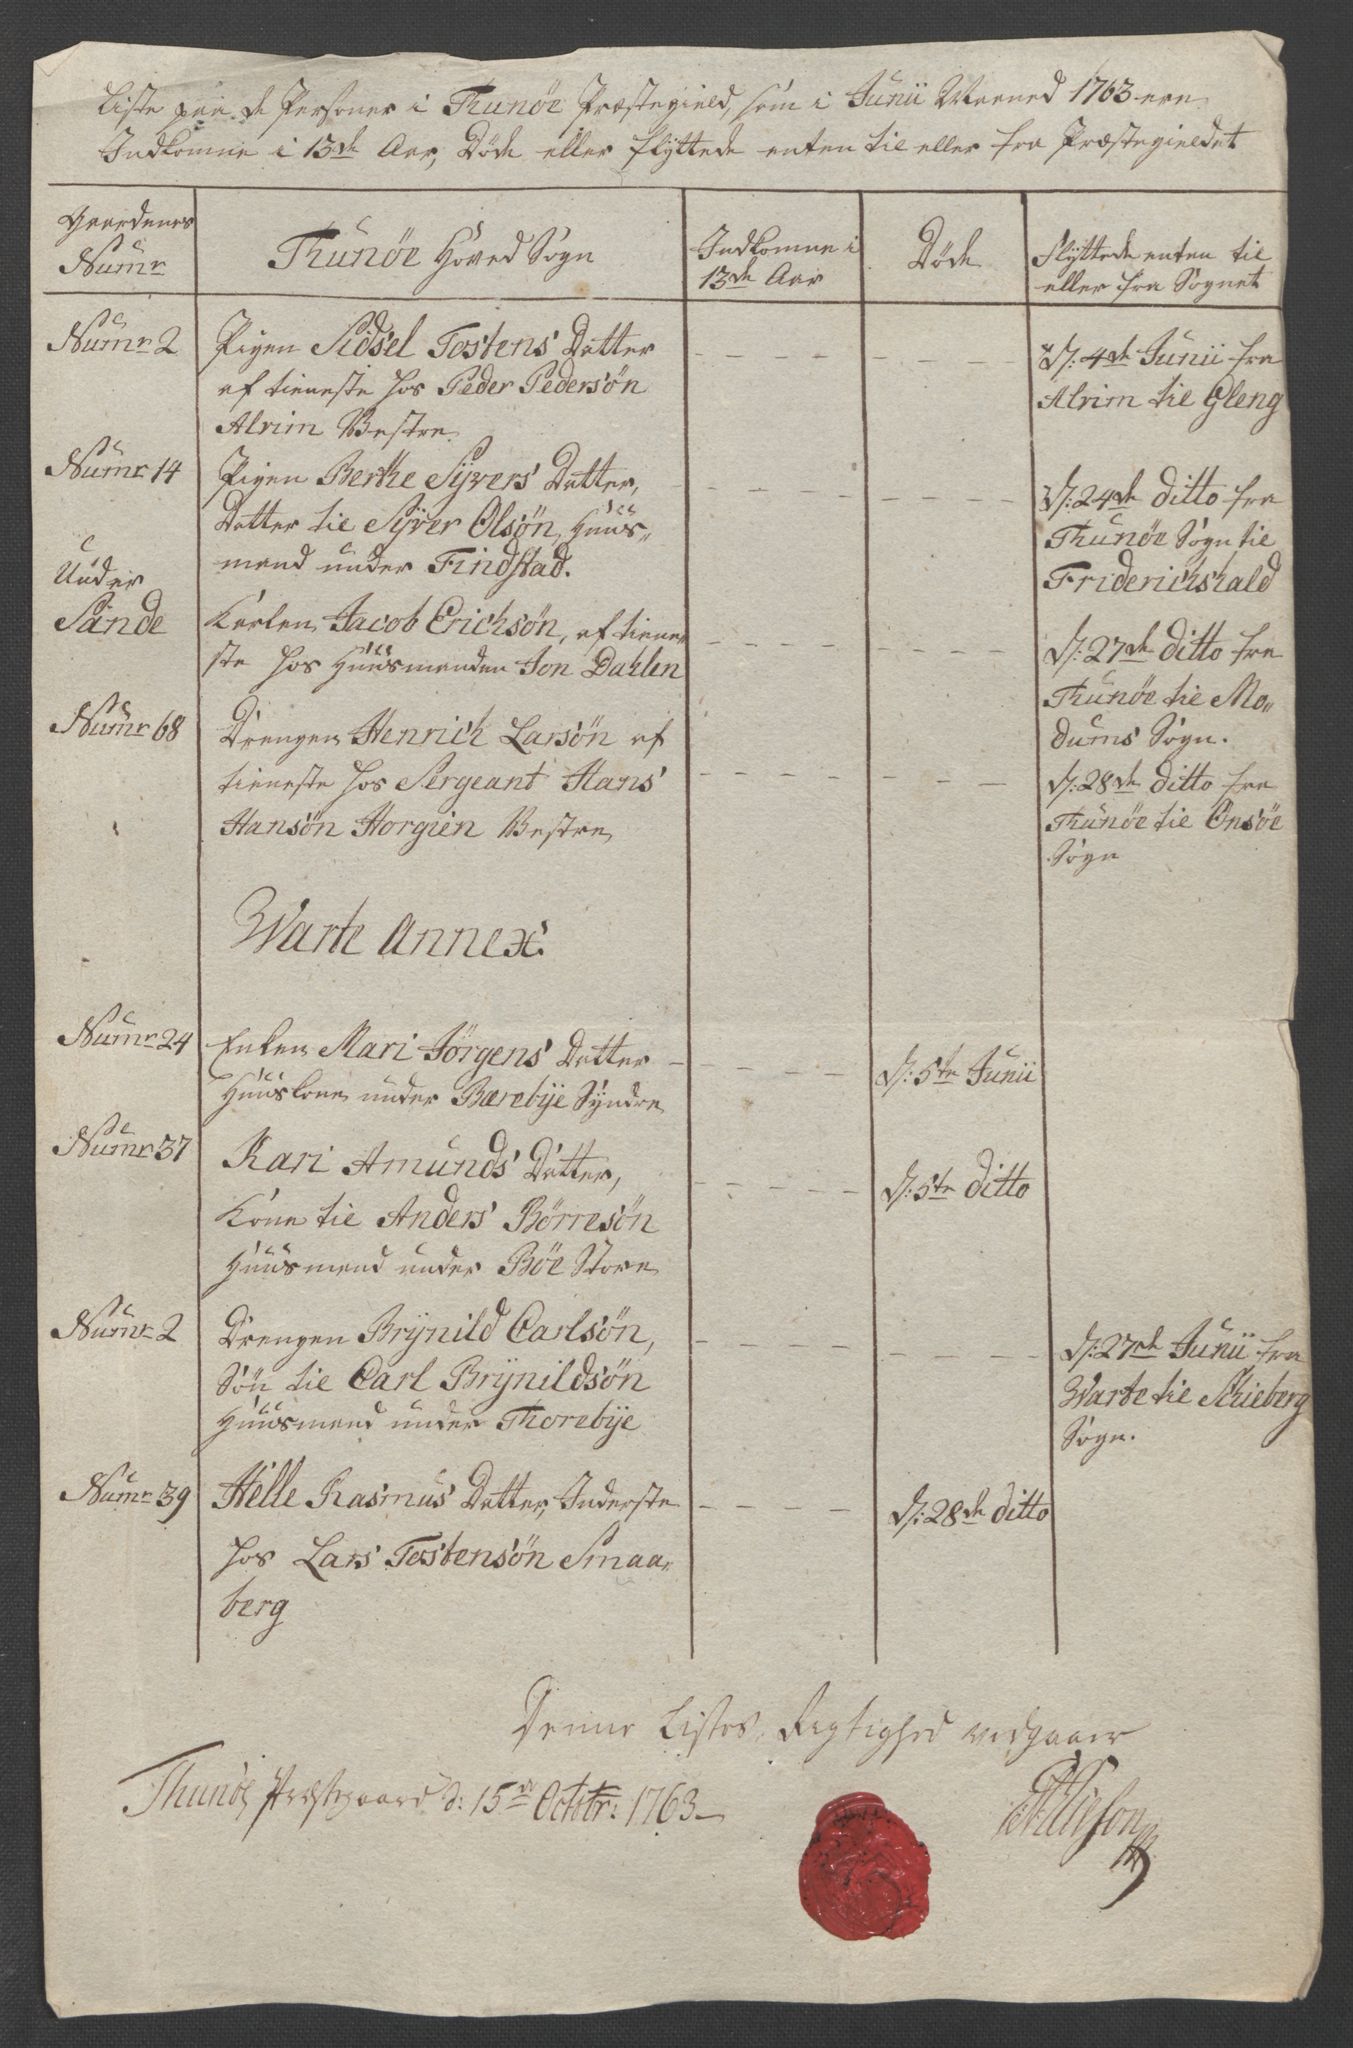 Liste paa de Personer i Thunøe Præstegield, som i Junii Maaned 1763 ere
Indkomne i 13de Aar, Døde eller flyttede enten til eller fra Præstegieldet
Gaardenes
Numr
Thunøe Hoved Sogn
Indkomne i
13de Aar
Døde
Flyttede enten til
eller fra Sognet
Numr 2
Pigen Sidsel Tostens Datter
af tieneste hos Peder Pedersøn
Alvim Vestre
d: 4de Junii fra
Alvim til Gleng
Numr 14
Pigen Berthe Syvers Datter,
Datter til Syver Olsøn, Huus-
mand under Findstad.
d: 24de ditto fra
Thunøe Sogn til
Friderichshald
Under
Sande
Karlen Jacob Erichsøn, af tiene-
ste hos Huusmanden Jon Dahlen
d: 27de ditto fra
Thunøe til Mo-
dums Sogn.
Numr 68
Drengen Henrich Larsøn af
tieneste hos Sergeant Hans
Hansøn Horgien Vestre
d: 28de ditto fra
Thunøe til Onsøe
Sogn
Warte Annex.
Numr 24
Enken Mari Jørgens Datter
Huuskone under Bærebye Syndre
d: 5te Junii
Numr 37
Kari Amunds Datter,
Kone til Anders Børresøn
Huusmand under Bøe Store
d: 5te ditto
Numr 2
Drengen Brynild Carlsøn,
Søn til Carl Brynildsøn
Huusmand under Thorebye
d: 27de Junii fra
Warte til Schieberg
Sogn.
Numr 39
Helle Rasmus Datter, Inderste
hos Lars Tostensøn Smaa-
berg
d: 28de ditto
Denne Listes Rigtighed vedgaaer
Thunøe Præstegaard d: 15de Octobr: 1763